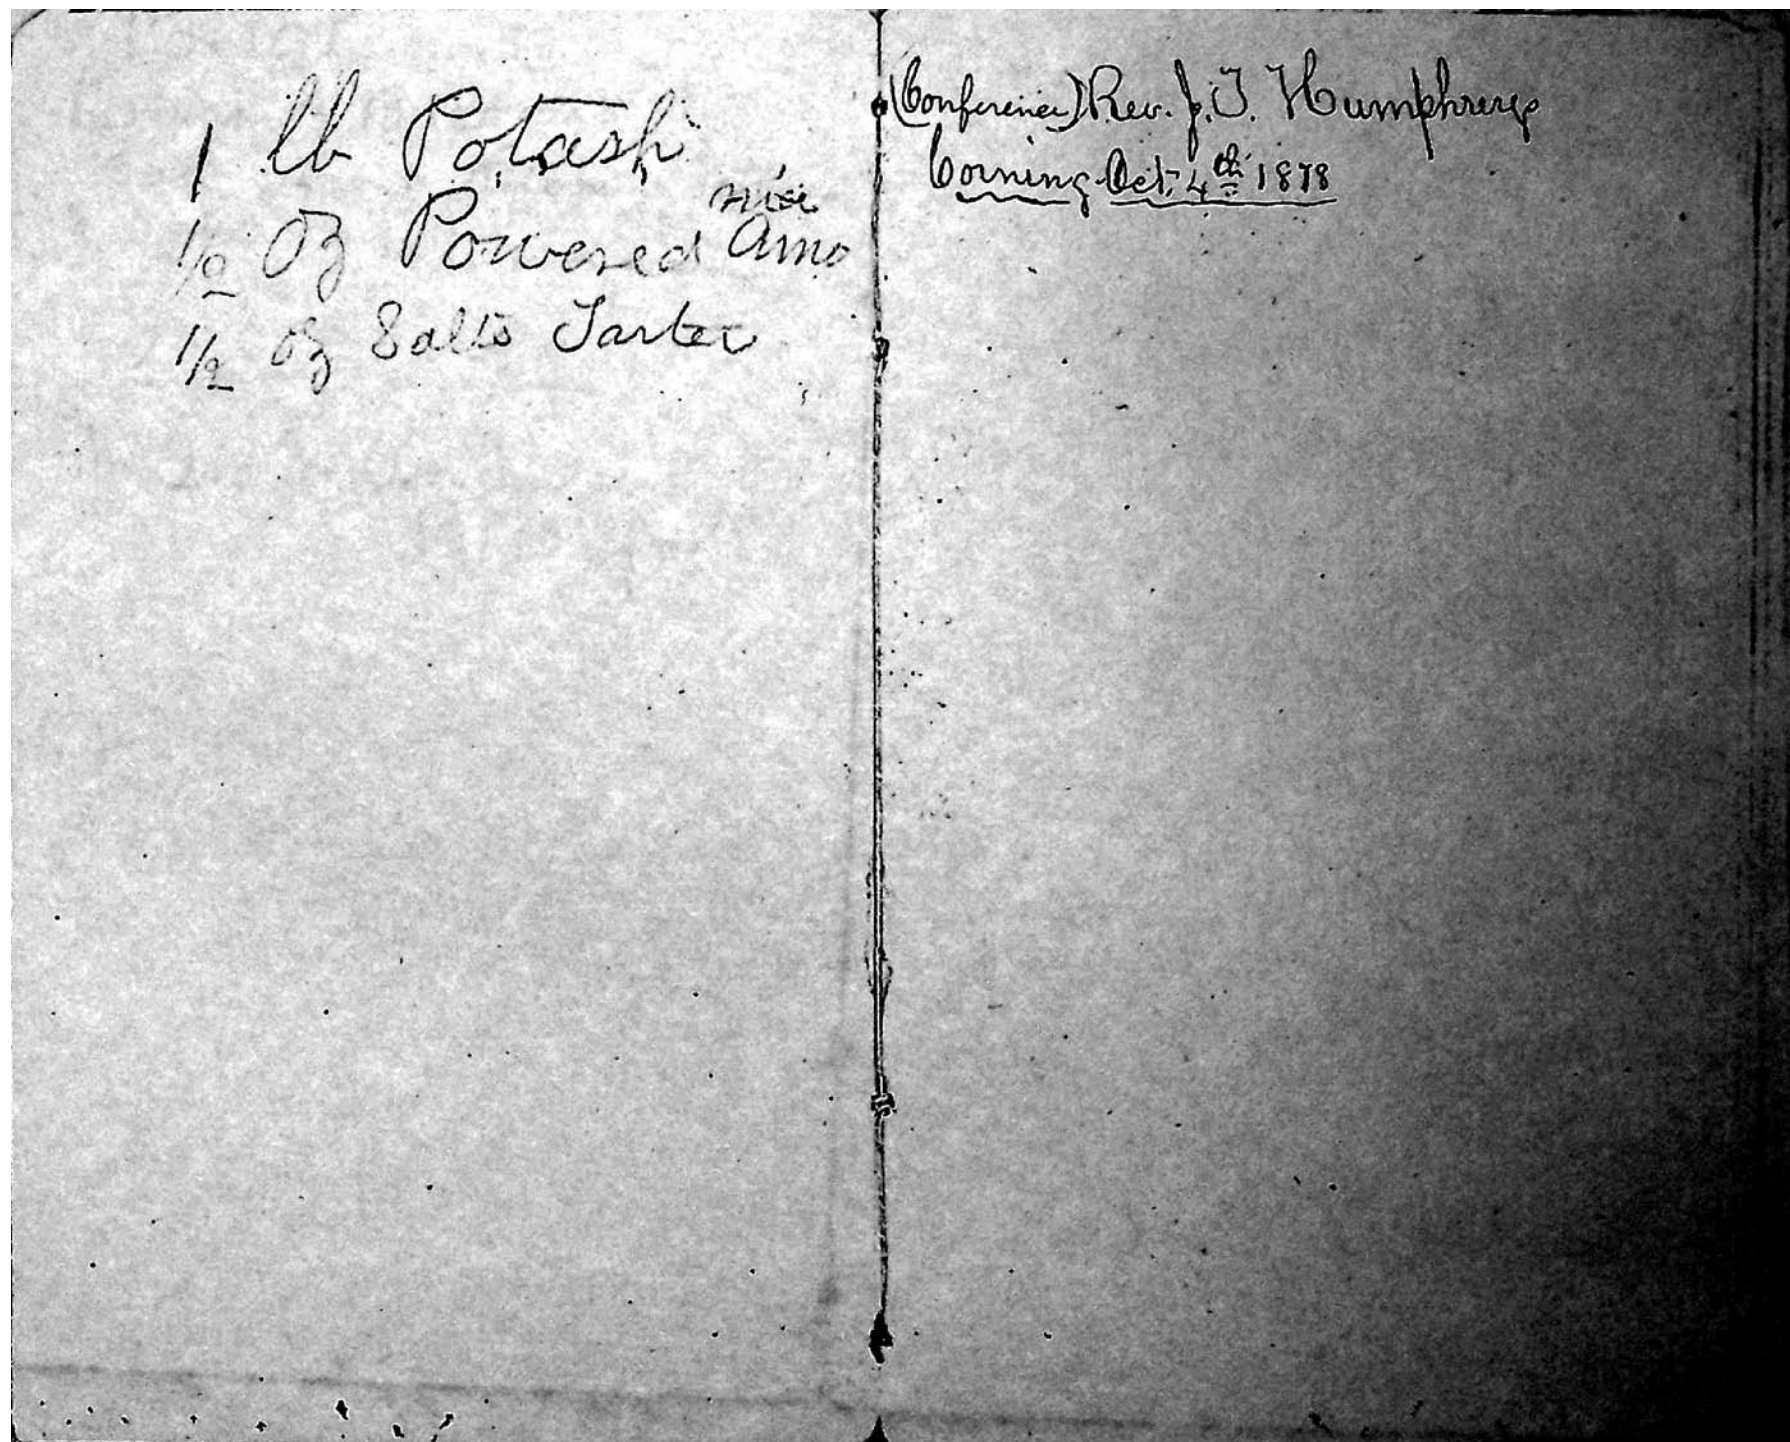 1 lb Potash
1/2 oz Powered Amo
nia
1/2 oz Salts Tarter
(Conference) Rev. J. T. Humphreys
Corning Oct. 4th 1878